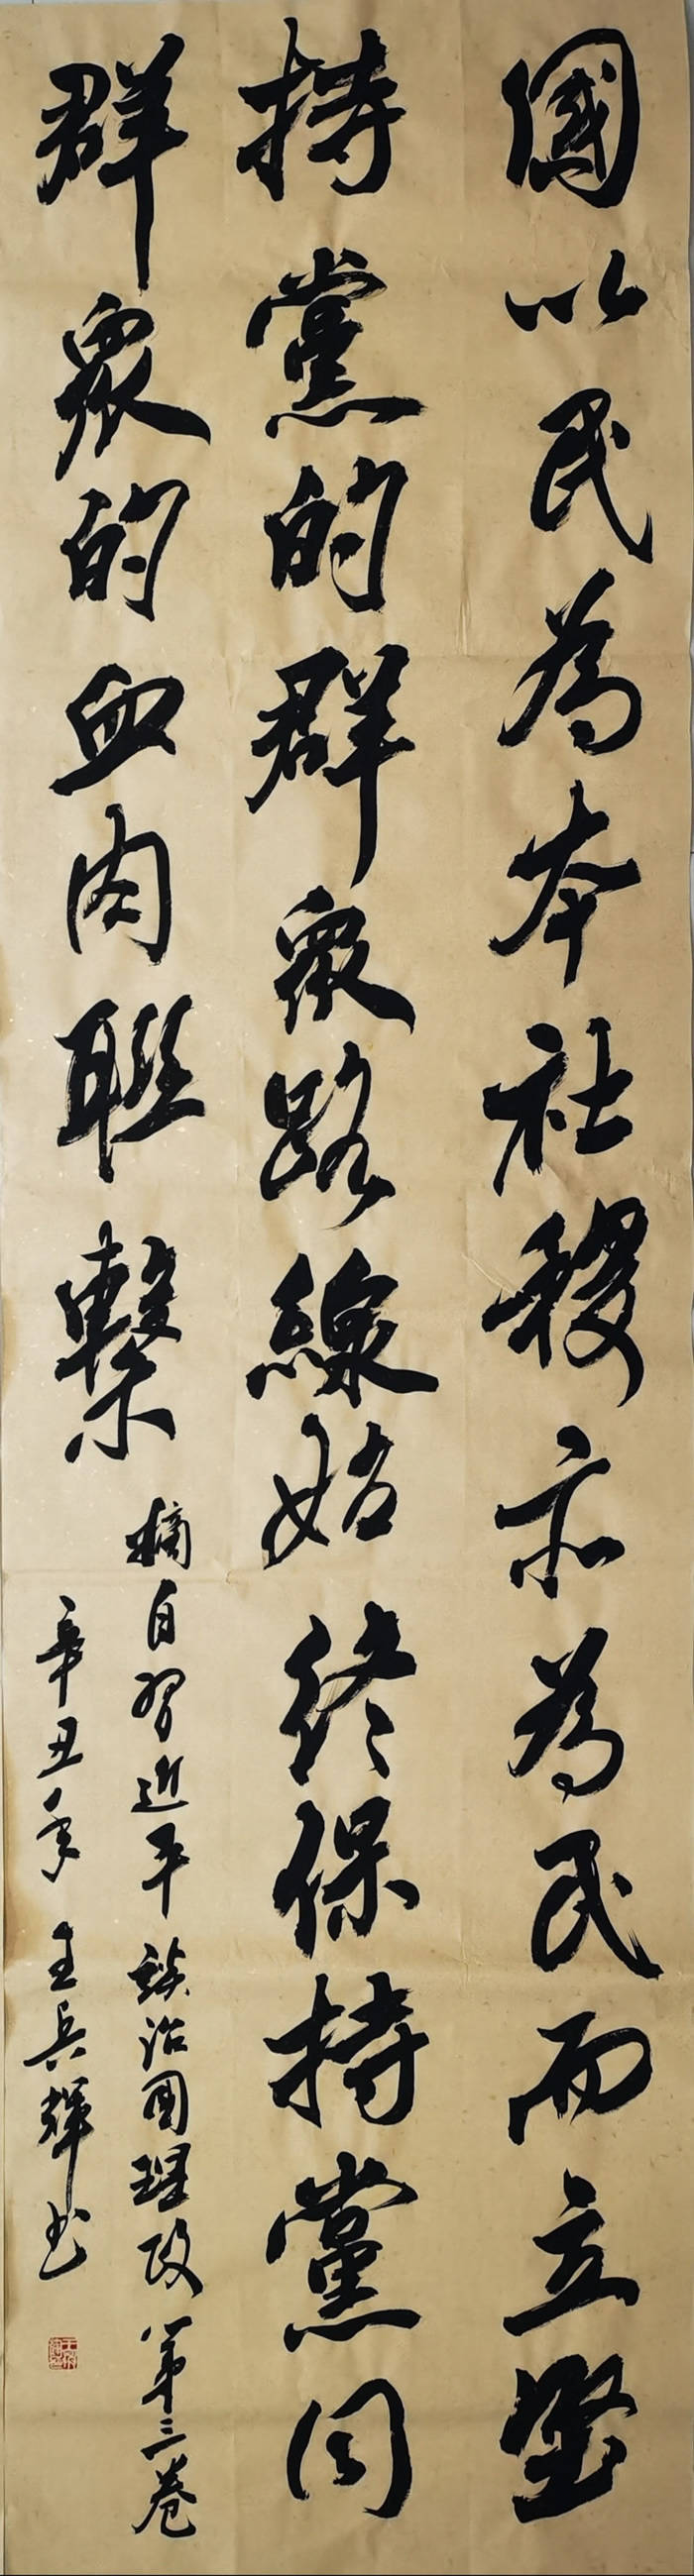 國以民為本社稷亦為民而立堅
持黨的群衆路線始終保持黨同
群衆的血肉聯繫
摘自習近平談治國理政第三卷
辛丑年王兵輝書